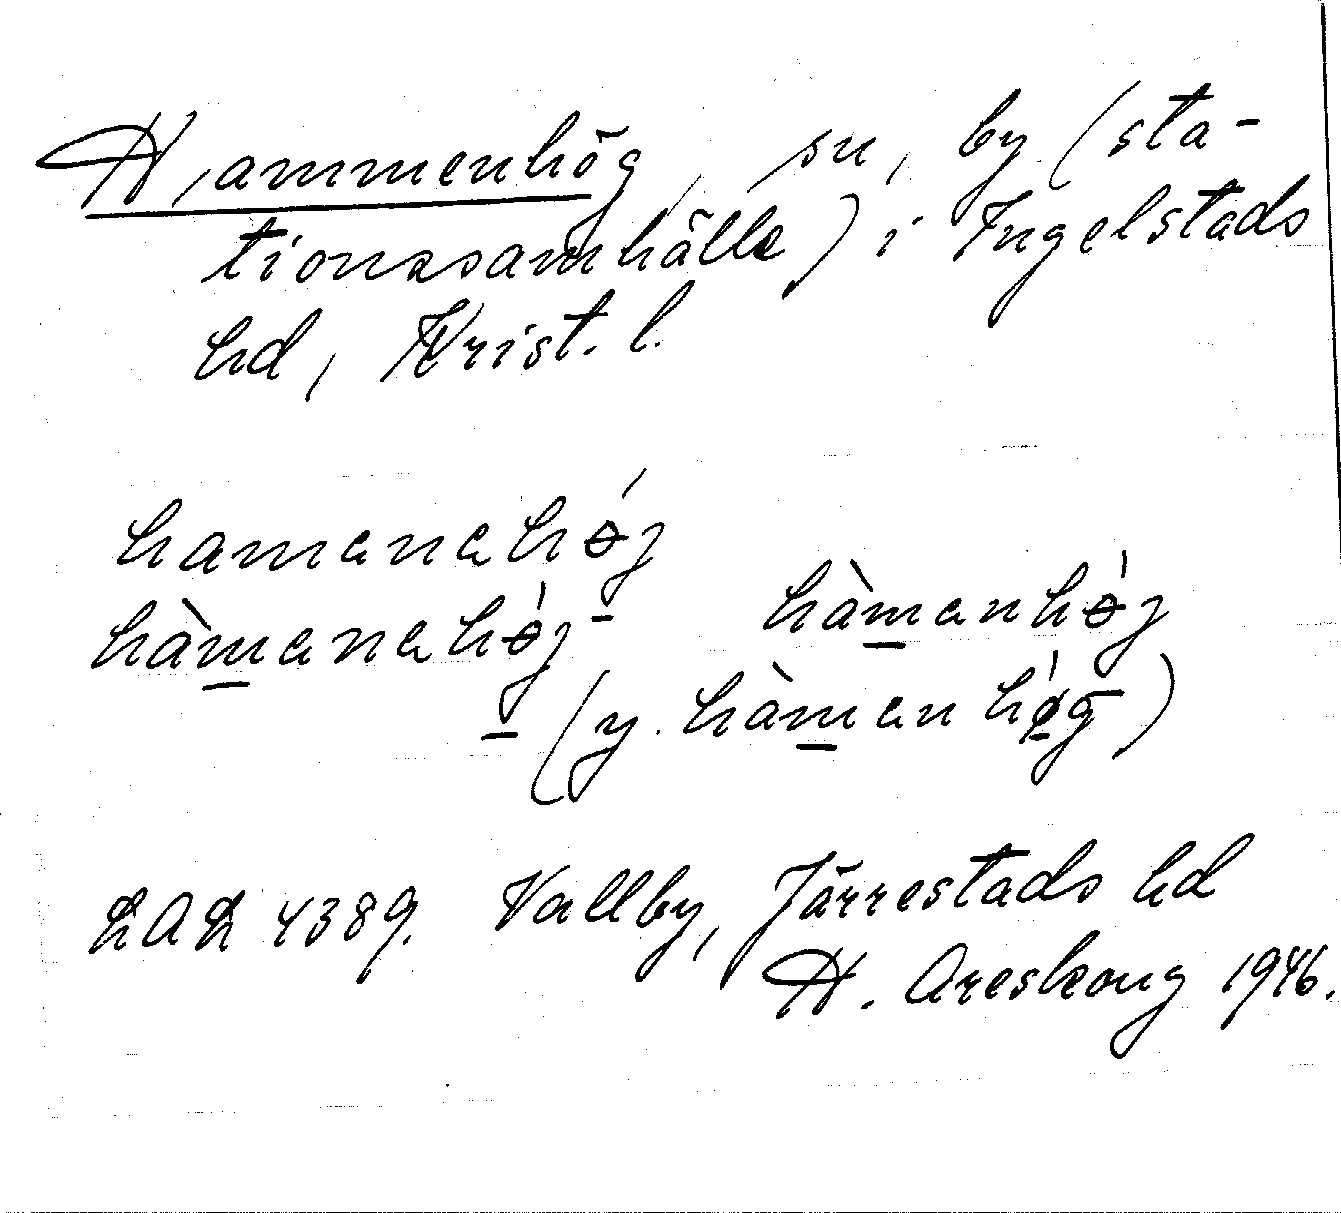 Hammenhög, sn, by (sta-
tionssamhälle) i Ingelstads
hd, Krist. l.
hamanahǿj
hàm̲anahɵ́j- hàm̲anhɵ́j
(y. hàm̲anhǿ̲g)
LAL 4389. Vallby, Järrestads hd
H. Areskoug 1946.